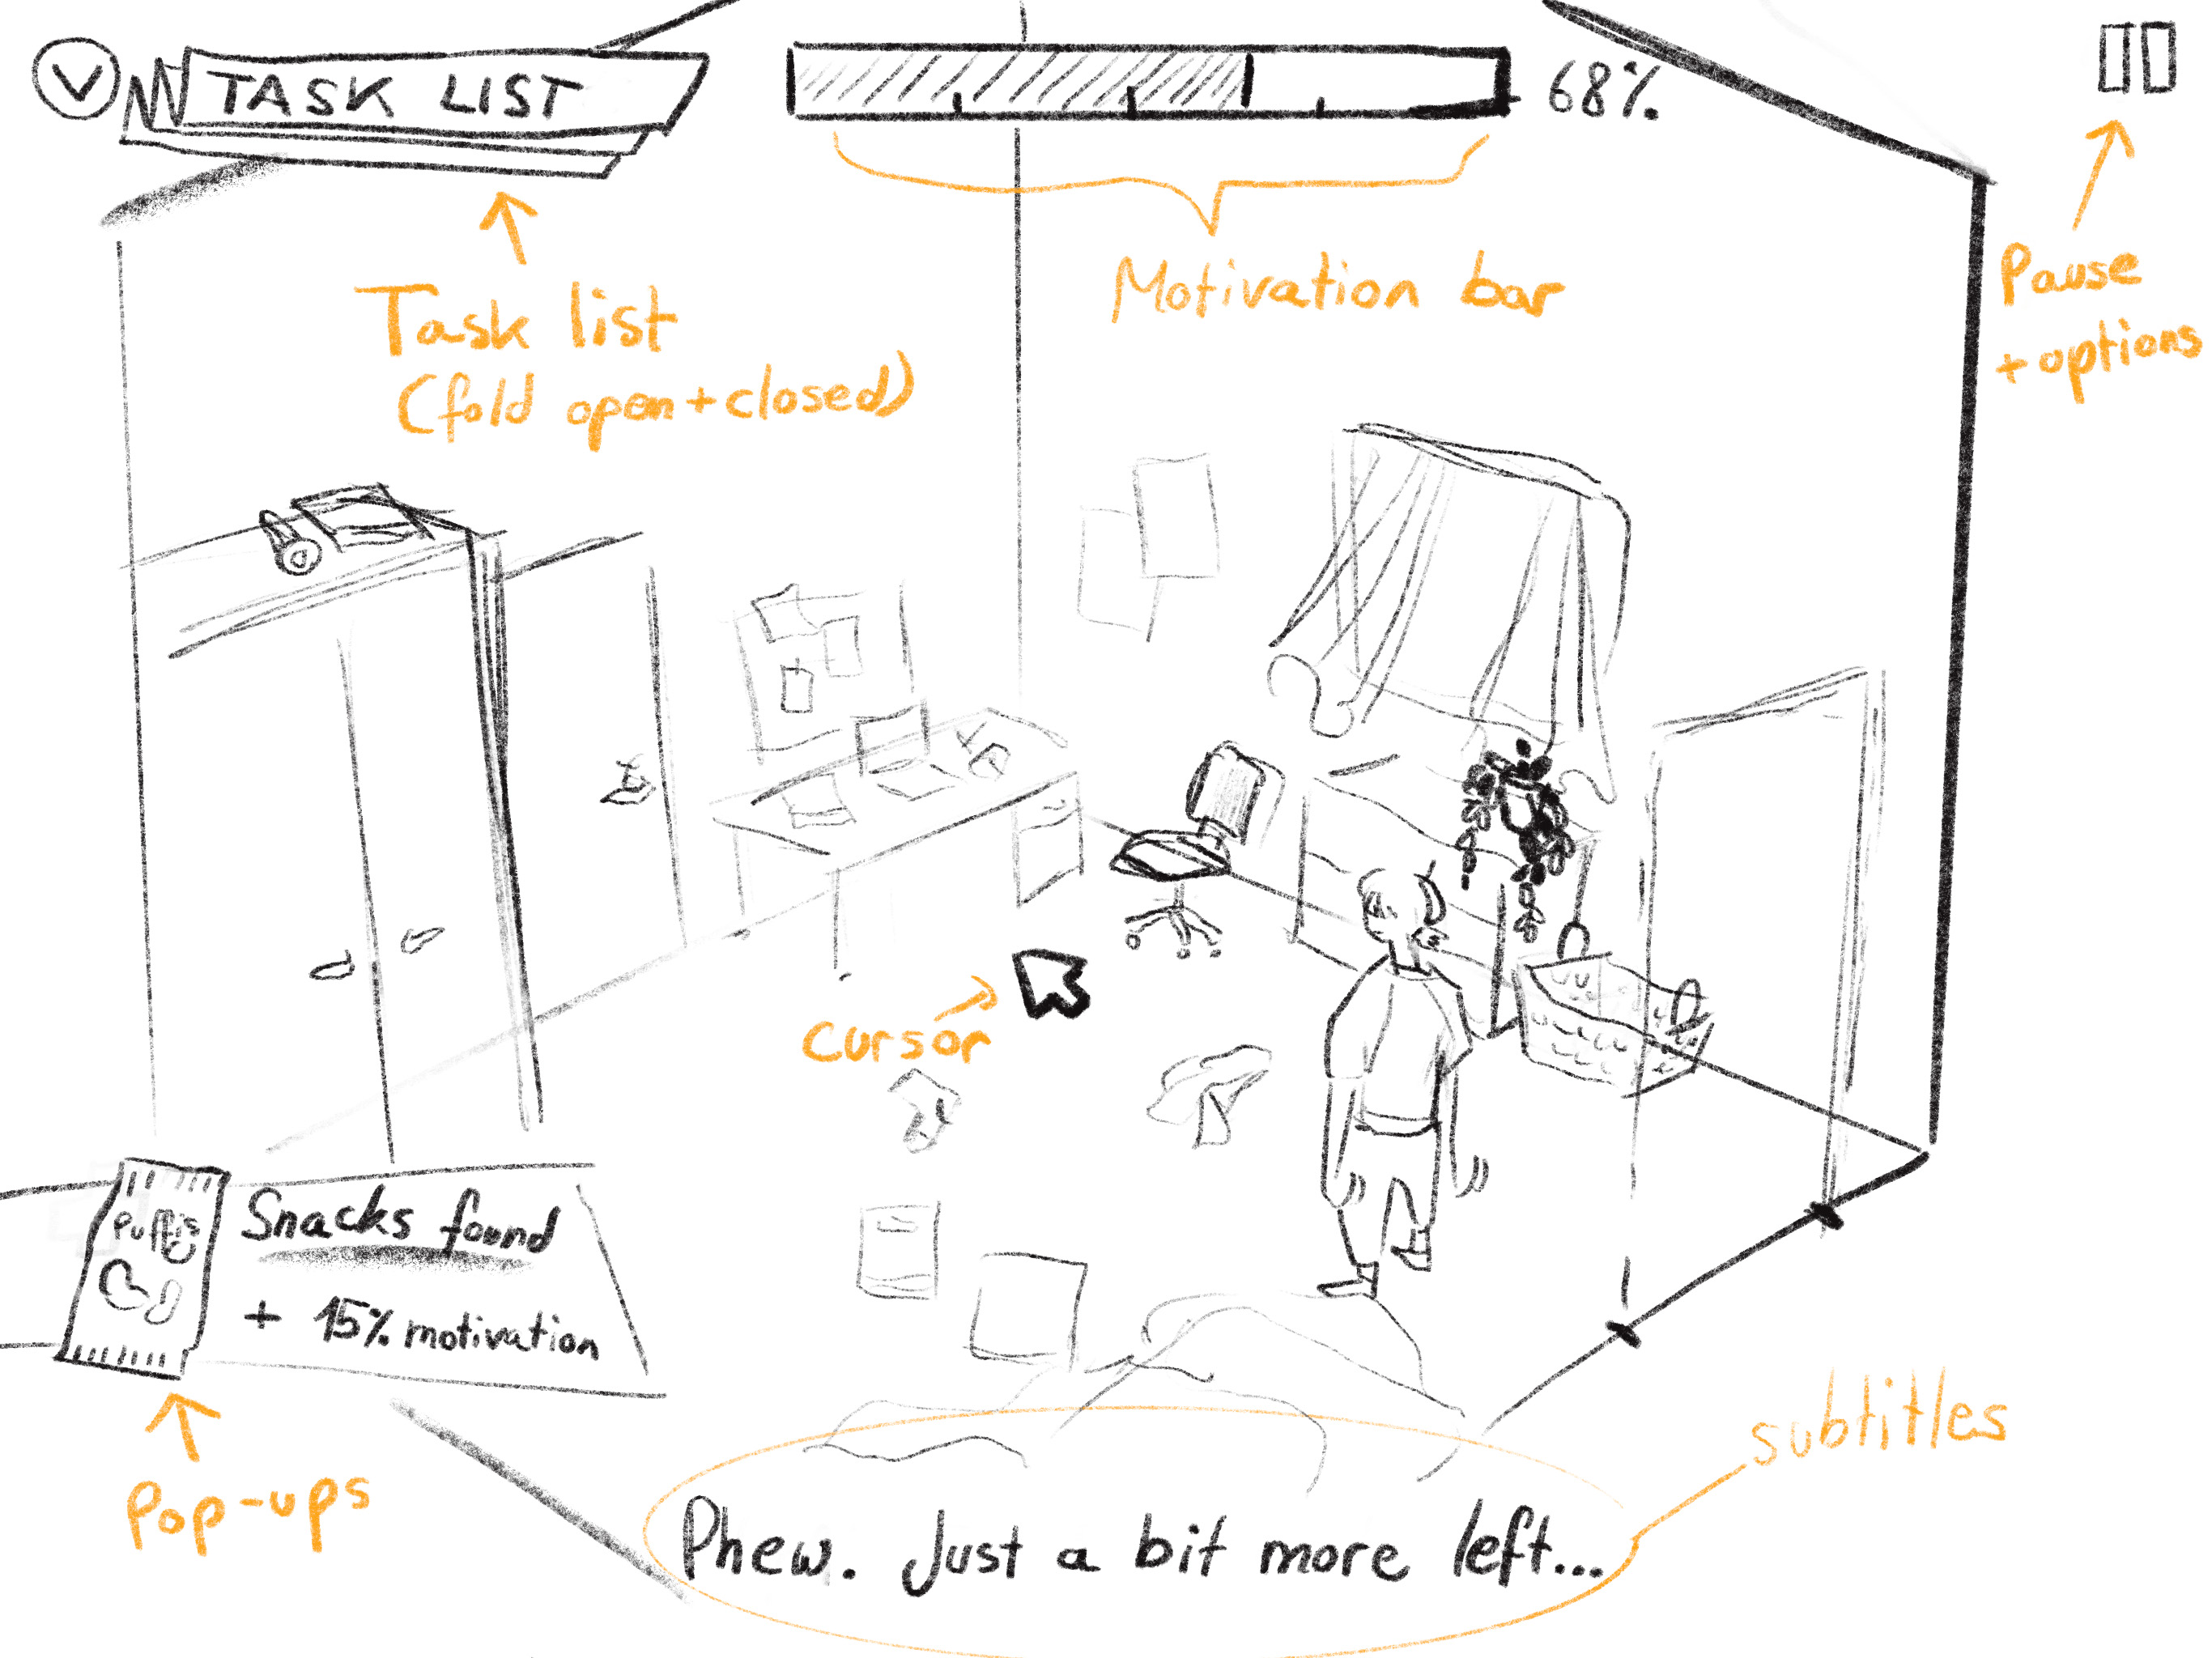 V
TASK LIST
68%
Task list
(fold open+closed)
Motivation bar
Pause
+options
cursor
Puffis
Snacks found
+ 15% motivation
Pop-ups
subtitles
Phew. Just a bit more left...